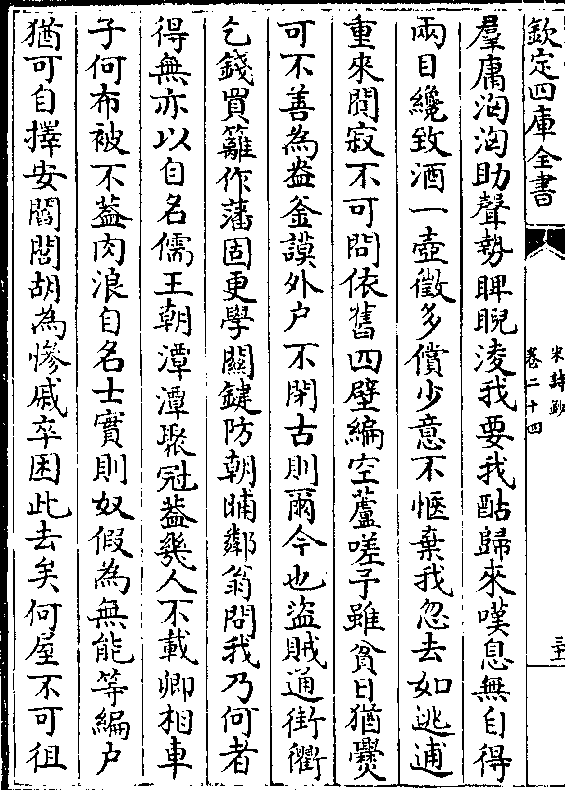 欽定四庫全書
宋詩鈔
卷二十四
羣庸洶洶助聲勢睥睨淩我要我酤歸來嘆息無自得
兩目纔致酒一壺徵多償少意不愜棄我忽去如逃逋
重來閴寂不可問依舊四壁編空蘆嗟予雖貧日猶爨
可不善為盎釜謨外户不閉古則爾今也盜賊通街衢
乞錢買籬作藩固更學關鍵防朝晡鄰翁問我乃何者
得無亦以自名儒王朝潭潭聚冠蓋幾人不載卿相車
子何布被不蓋肉浪自名士實則奴假為無能等編户
猶可自擇安閻閭胡為慘戚卒困此去矣何屋不可徂